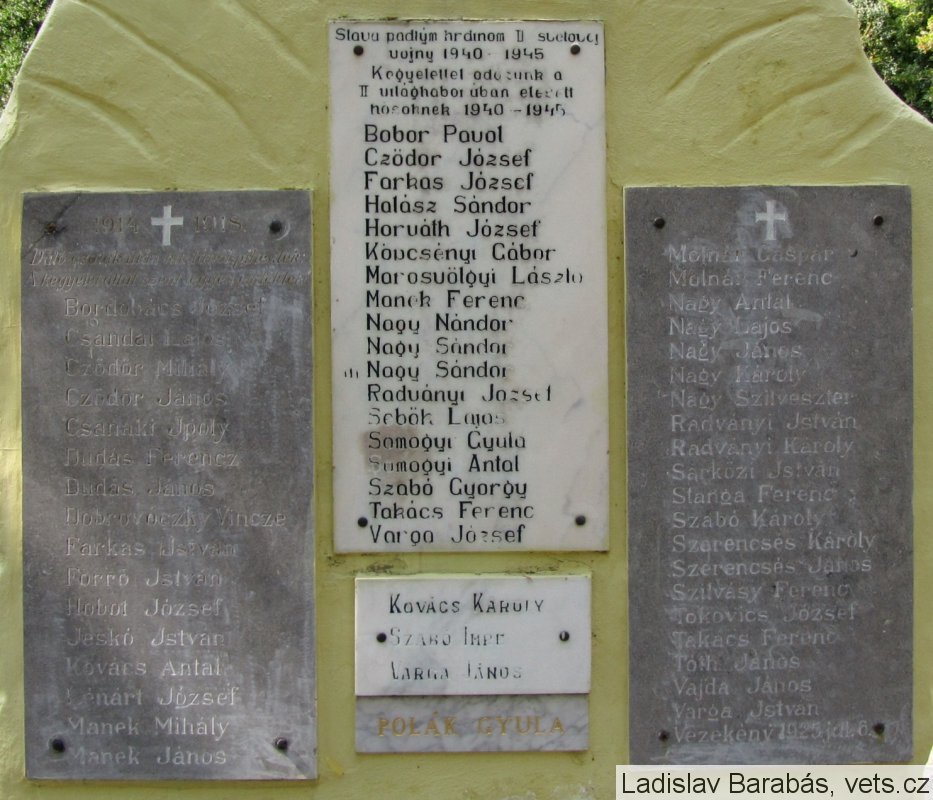 1914 1918
Bordobács József
Csandal Lajos
Czödör Mihály
Czödör János
Csanaki Jpoly
Dudás Ferencz
Dudás János
Dobrovoczky Vincze
Farkas Jstván
Forró Jstván
Hobot József
Jeskó Jstván
Kovács Antal
Lénárt József
Manek Mihály
Manek János
Slava padlým hrdinom II svetovej
vojny 1940 - 1945
Kegyelettel adózunk a
II világháborúban elesett
hősöknek 1940 - 1945
Bobor Pavol
Czödor József
Farkas József
Halász Sándor
Horváth József
Kövcsényi Gábor
Marosvölgyi László
Manek Ferenc
Nagy Nándor
Nagy Sándor
Nagy Sándor
Radványi József
Sebök Lajos
Somogyi Gyula
Somogyi Antal
Szabó Gyorgy
Takács Ferenc
Varga József
Kovács Károly
Szabó Imre
Varga János
POLÁK GYULA
Molnár Gáspár
Molnár Ferenc
Nagy Antal
Nagy Lajos
Nagy János
Nagy Károly
Nagy Szilveszter
Radványi Jstván
Radványi Károly
Sárközi Jstván
Slanga Ferenc
Szabó Károly
Szerencsés Károly
Szerencsés János
Szilvásy Ferenc
Tokovics József
Takács Ferenc
Tóth János
Vajda János
Varga Jstván
Vezekény 1925 júl. 6.
Ladislav Barabás, vets.cz